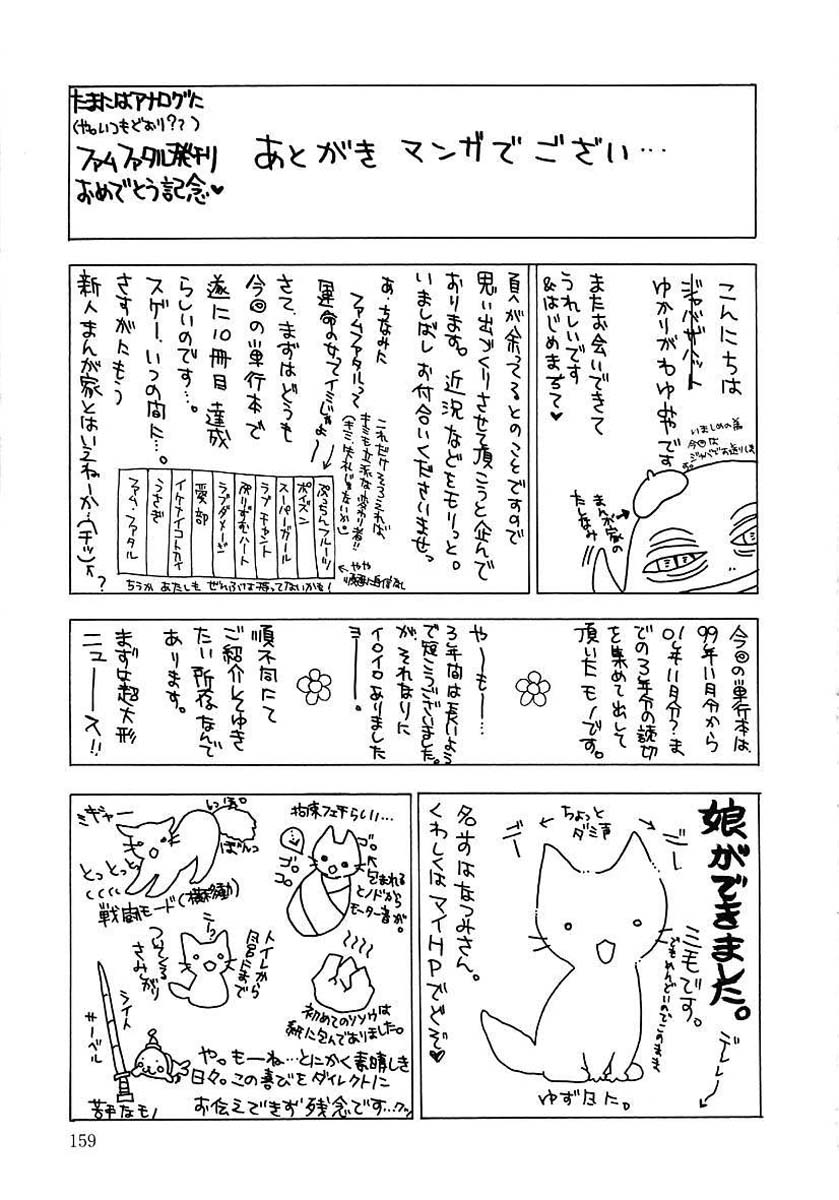 たまにはアナログに
(やついつもどおり???)
ファム ファタル発刊
おめでとう記念♥
あとがき マンガで ござい…
こんにちは
ジャバザハット
ゆかりがわゆみやです
またお会いできて
うれしいです
&はじめまちて♥
いましめの為
今回は
ジャバでお送りします。
まんが家の
たしなみ
頁が余ってるとのことですので
思い出づくりさせて頂こうと企んで
おります。近況などをモリっと。
いましばしお付合いくださいませっ
あ、ちなみに
ファムファタルって
運命の女ってイミじゃよ〜
さて、まずはどうも
今回の単行本で
遂に10冊目達成
らしいのです…。
スゲー、いつの間に…。
さすがにもう
新人まんが家とはいえねーか(チッ)
これだけそろえれば
キミも立派な変わり者!!
(キミ、失礼じゃないか)
ぷっちんフルーツ
ポイズン
スーパーガール
ラブチャント
ぷりずむハート
ラブダメージ
愛部
イケナイコトカイ
うさぎ
ファム・ファタル
やや
順番に自信なし
ちうか あたしも ぜんぶは持ってないかも!
今回の単行本は、
99年11月分から
01年11月分?ま
での3年分の読切
を集めて出して
頂いたモノです。
や〜も〜…
3年間は長いよう
で短こうございました。
が、それなりに
イロイロありました
ヨー。
順不同にて
ご紹介してゆき
たい所存なんで
あります。
まずは超大形
ニュース!!
娘ができました。
三毛です。
でもめんどいのでこのまま
デレレー
ちょっと
ダミ声
ごー
ごー
名まえはなつみさん。
くわしくはマイHPでどぞ♥
ゆず似に。
拘束フェチらしい…
ゴロ
ゴロ
ゴロ
包まれる
とノドから
モーター音が。
ミギャー
しっぽ。
ぼんっ
とっとっとっ
戦闘モード(横移動)
トイレから
風呂にまで
ついてくる
さみしがり
ニーッ
初めてのソソウは
紙に包んでありました。
シイト
サーベル
苦手なモノ
や。もーね…とにかく素晴しき
日々。この喜びをダイレクトに
お伝えできず残念です…クッ
159